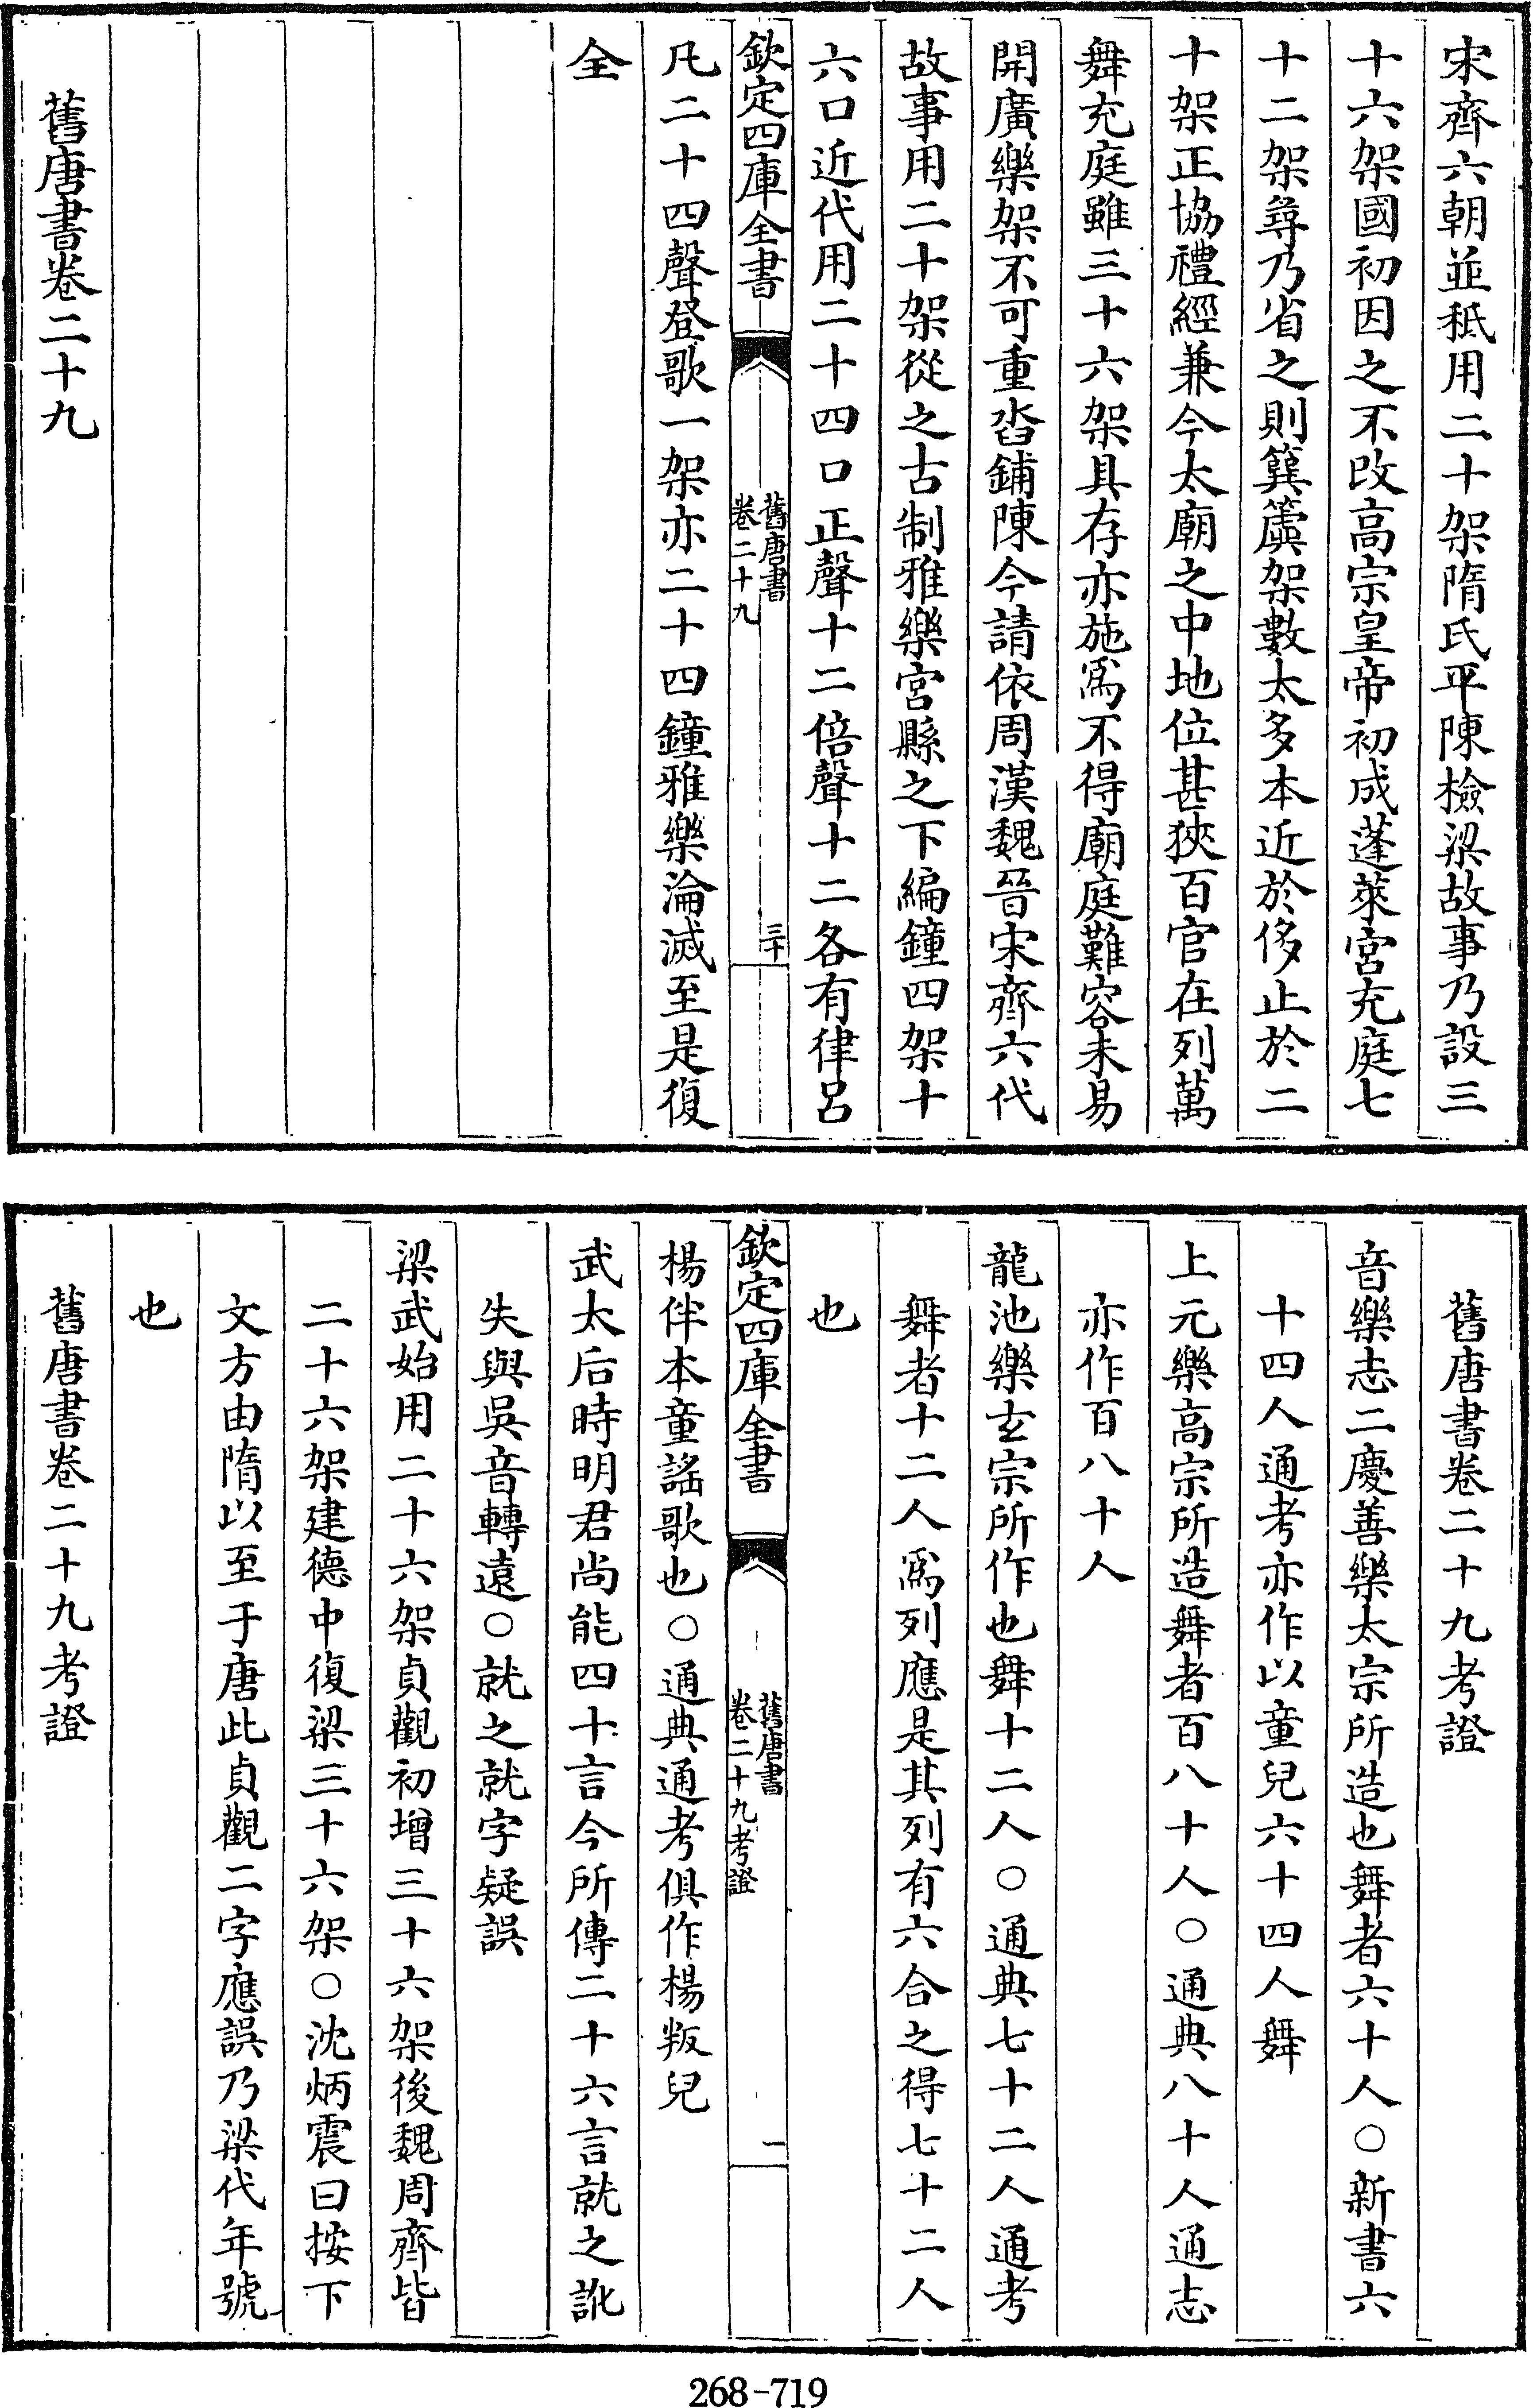 宋齊六朝並秪用二十架隋氏平陳檢梁故事乃設三
十六架國初因之不改高宗皇帝初成蓬萊宮充庭七
十二架尋乃省之則簨簴架數太多本近於侈止於二
十架正協禮經兼今太廟之中地位甚狹百官在列萬
舞充庭雖三十六架具存亦施爲不得廟庭難容未易
開廣樂架不可重沓鋪陳今請依周漢魏晉宋齊六代
故事用二十架從之古制雅樂宮縣之下編鐘四架十
六口近代用二十四口正聲十二倍聲十二各有律呂
欽定四庫全書
舊唐書
卷二十九
三十
凡二十四聲登歌一架亦二十四鐘雅樂淪滅至是復
全
舊唐書卷二十九
舊唐書卷二十九考證
音樂志二慶善樂太宗所造也舞者六十人○新書六
十四人通考亦作以童兒六十四人舞
上元樂高宗所造舞者百八十人○通典八十人通志
亦作百八十人
龍池樂玄宗所作也舞十二人○通典七十二人通考
舞者十二人爲列應是其列有六合之得七十二人
也
欽定四庫全書
舊唐書
卷二十九考證
一
楊伴本童謠歌也○通典通考俱作楊叛兒
武太后時明君尚能四十言今所傳二十六言就之訛
失與吳音轉遠○就之就字疑誤
梁武始用二十六架貞觀初增三十六架後魏周齊皆
二十六架建德中復梁三十六架○沈炳震曰按下
文方由隋以至于唐此貞觀二字應誤乃梁代年號
也
舊唐書卷二十九考證
268-719